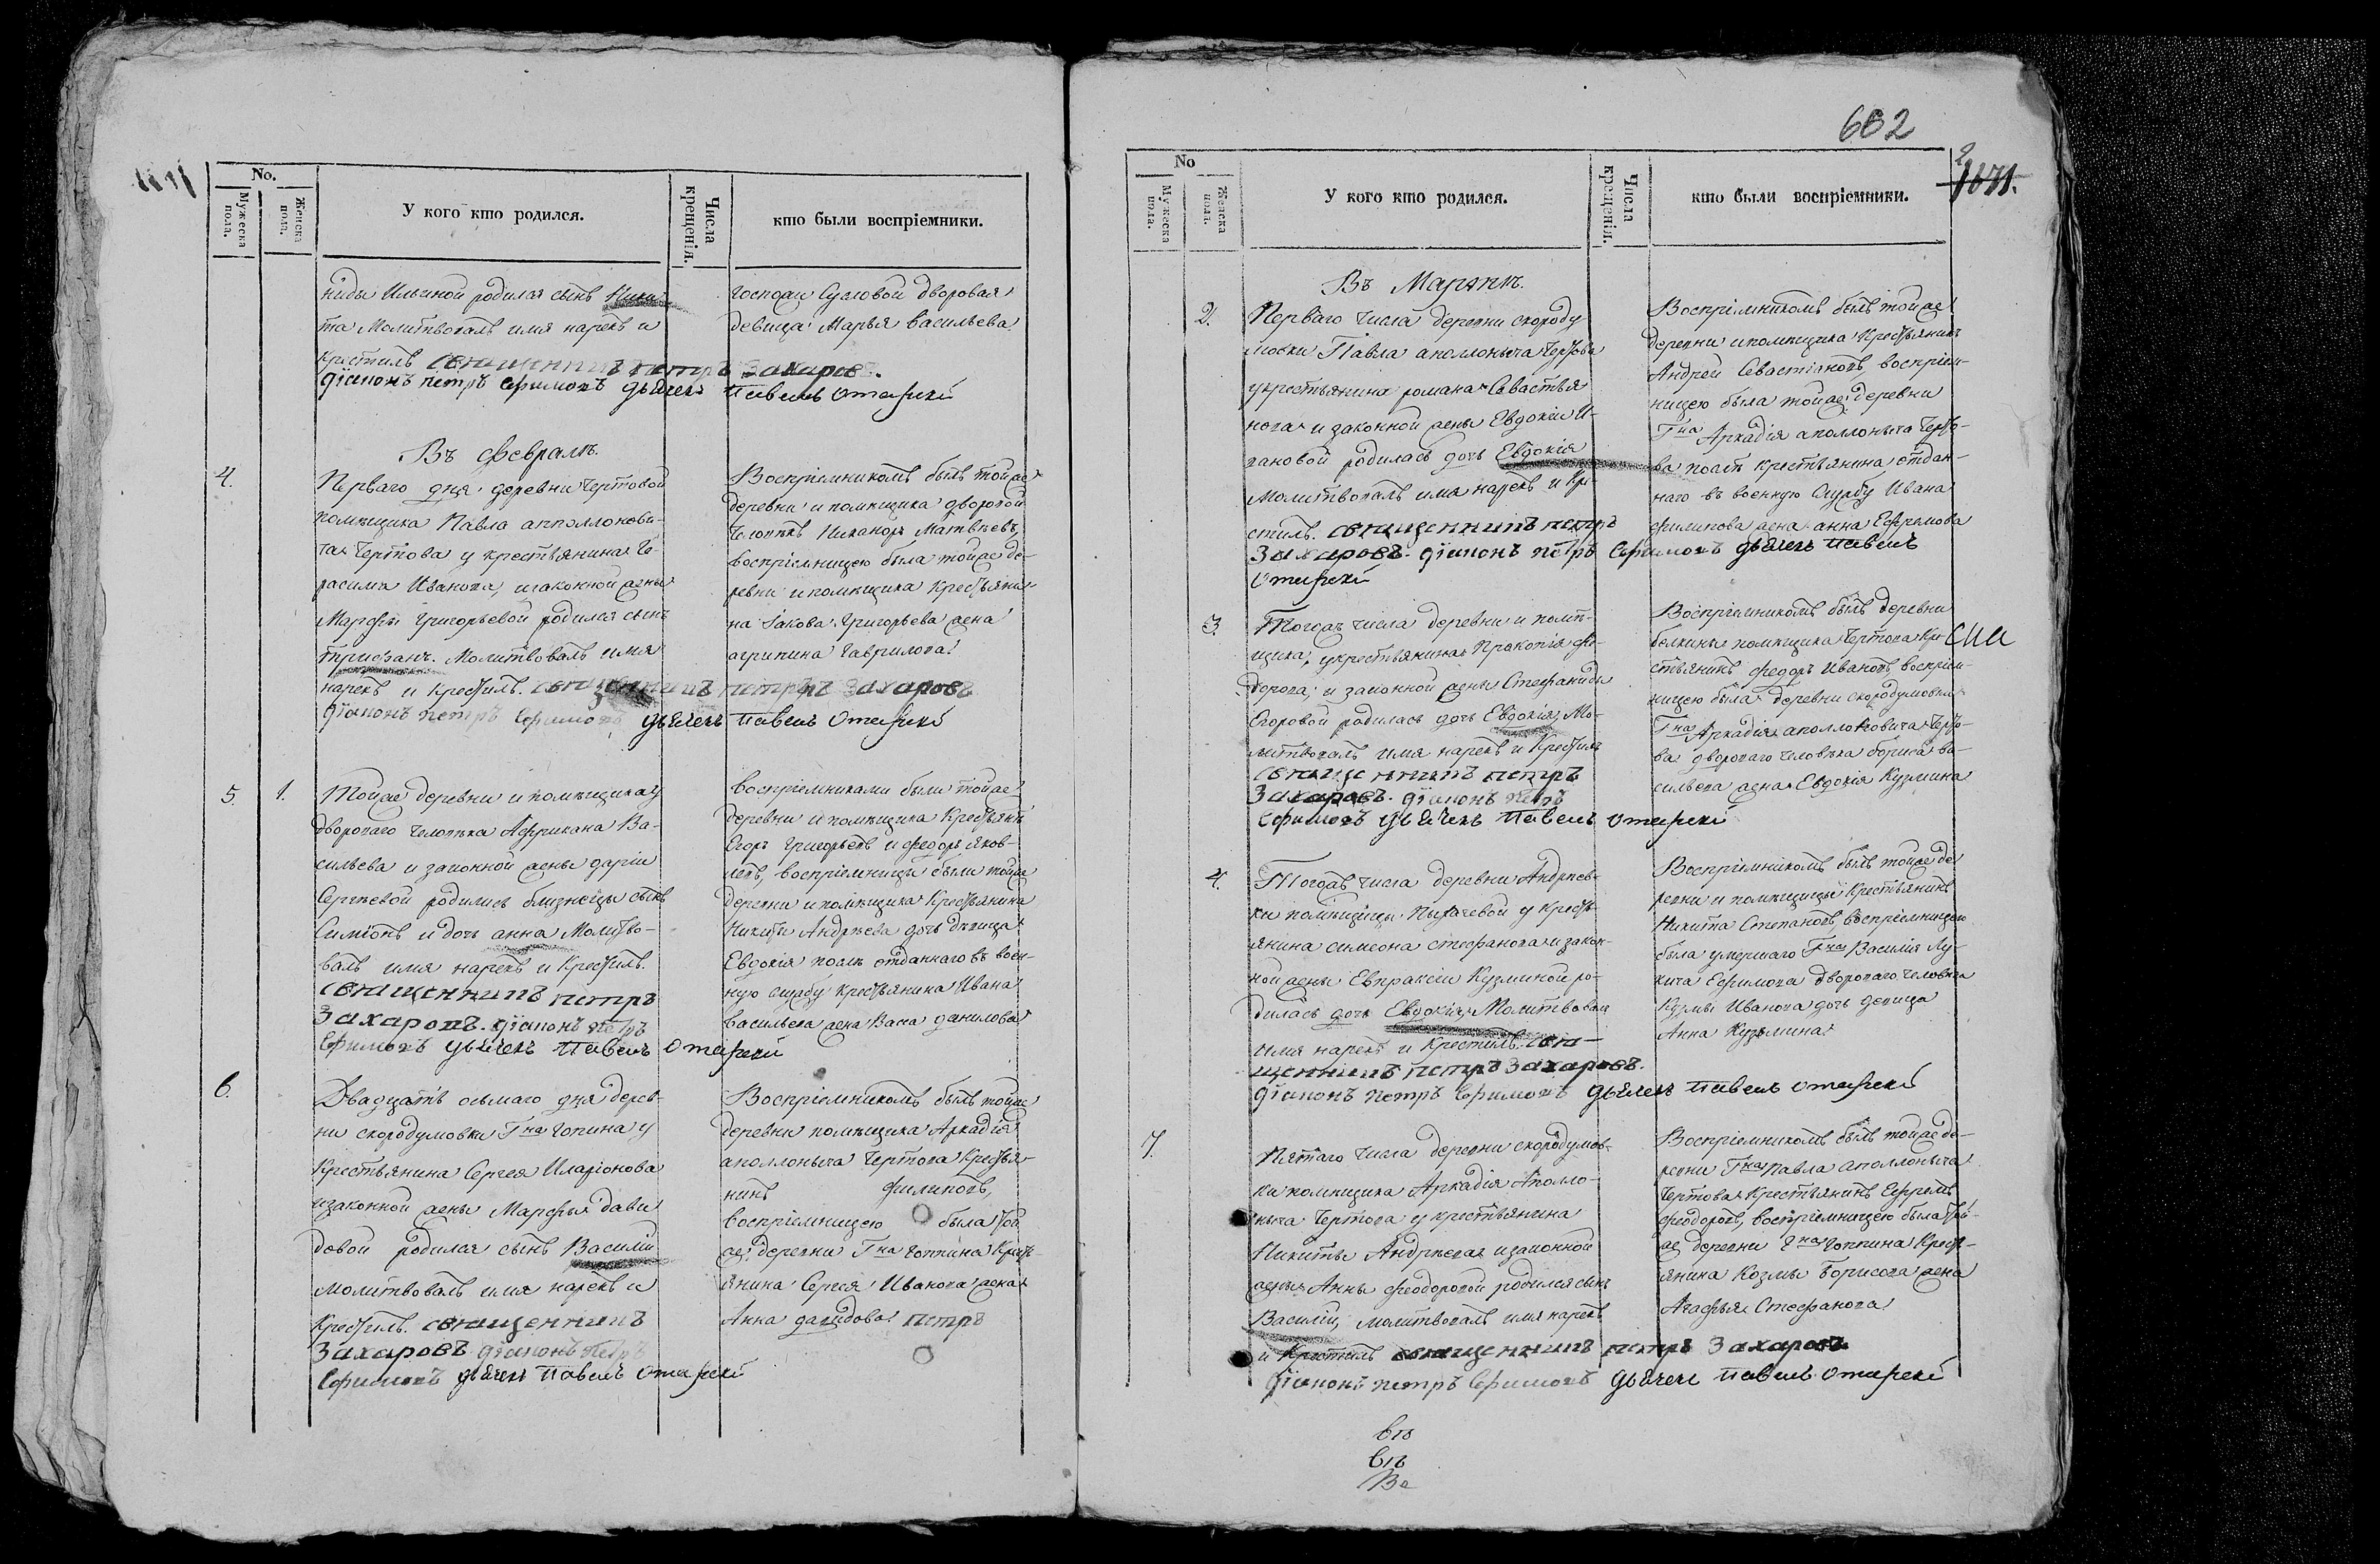 No.
Мужеска пола.
Женска пола.
У кого кто родился.
Числа крещенія.
кто были воспріемники.
ниды Ильиной родился сынъ Ники-
та Молитвовалъ имя нарекъ и
крестилъ священникъ петръ Захаровъ.
діаконъ петръ Ефимовъ дьячекъ Павелъ
госпожи Сусловой дворовая
девица Марья Васильева
Въ Февралѣ.
4.
Перваго дня деревни Чертовой
помѣщика Павла апполлонови-
ча Чертова у крестьянина Ге-
расима Иванова, и законной жены
Марфы Григорьевой родился сынъ
Трифанъ. Молитвовалъ имя
нарекъ и крестилъ. священникъ петръ Захаровъ
діаконъ петръ Ефимовъ дьячекъ Павелъ
Воспріемникомъ былъ тойже
деревни и помѣщика дворовой
человѣкъ Никаноръ Матвѣевъ,
воспріемницею была тойже де-
ревни и помѣщика крестьяни-
на Іакова Григорьева жена
агрипина Гаврилова
5. 1.
Тойже деревни и помѣщика у
двороваго человѣка Африкана Ва-
сильева и законной жены даріи
Сергѣевой родились близнецы сынъ
Симіонъ и дочь анна Молитво-
валъ имя нарекъ и крестилъ.
священникъ петръ
Захаровъ. діаконъ петръ
Ефимовъ дьячекъ Павелъ
воспріемниками были тойже
деревни и помѣщика крестьяне
Егоръ Григорьевъ и федоръ Яков-
левъ, воспріемницы были тойже
деревни и помѣщика крестьянина
Никиты Андрѣева дочь дѣвица
Евдокія и отданнаго въ воен-
ную службу крестьянина Ивана
васильева жена Васса данилова
6.
Двадцать осьмаго дня дерев-
ни скородумовки Гна Чопина у
крестьянина Сергея Иларіонова
и законной жены Марфы дави-
довой родился сынъ Василій
молитвовалъ имя нарекъ и
крестилъ. священникъ
Захаровъ діаконъ петръ
Ефимовъ дьячекъ Павелъ
Воспріемникомъ былъ тойже
деревни помѣщика Аркадія
аполлоныча Чертова крестья-
нинъ филиповъ,
воспріемницею была той
же деревни Гна Крест-
янина Сергея Иванова жена
Анна давидова петръ
602
No
Мужеска пола.
Женска пола.
У кого кто родился.
Числа крещенія.
кто были воспріемники.
Въ Мартѣ.
2.
Перваго числа деревни скороду-
мовки Павла аполлоныча Чертова
у крестьянина романа Севастья-
нова и законной жены Евдокіи И-
вановой родилась дочь Евдокія
Молитвовалъ имя нарекъ и кре-
стилъ. священникъ петръ
Захаровъ. діаконъ петръ Ефимовъ дьячекъ Павелъ
Воспріемникомъ былъ тойже
деревни и помѣщика крестьянинъ
Андрей Севастіановъ, воспріем-
ницею была тойже деревни
Гна Аркадія аполлоныча Черто-
ва крестьянина отдан-
наго въ военную службу Ивана
филипова жена анна Ефремова
3.
Тогожъ числа деревни и помѣ-
щика, у крестьянина Прокопія Фе-
дорова, и законной жены Стефаниды
Егоровой родилась дочь Евдокія, Мо-
литвовалъ имя нарекъ и крестилъ
священникъ петръ
Захаровъ. діаконъ петръ
Ефимовъ дьячекъ Павелъ
Воспріемникомъ былъ деревни
помѣщика Чертова кре-
стьянинъ федоръ Ивановъ, воспріем-
ницею была деревни скородумовки
Гна Аркадія аполлоновича Черто-
ва двороваго человѣка бориса ва-
сильева жена Евдокія Кузмина
4.
Тогожъ числа деревни Андреев-
ки помѣщицы у крест-
янина симеона стефанова и закон-
ной жены Евпраксіи Кузминой ро-
дилась дочь Евдокія, Молитвовалъ
имя нарекъ и крестилъ. свя-
щенникъ петръ Захаровъ.
діаконъ петръ Ефимовъ дьячекъ Павелъ
Воспріемникомъ былъ тойже де-
ревни и помѣщицы крестьянинъ
Никита Степановъ, воспріемницею
была умершаго Гна Василія Лу-
кича Ефимова двороваго человѣка
Кузмы Иванова дочь девица
Анна Кузьмина
7.
Пятаго числа деревни скородумов-
ки помѣщика Аркадія Аполло-
ныча Чертова у крестьянина
Никиты Андрѣева и законной
жены Анны феодоровой родился сынъ
Василій, молитвовалъ имя нарекъ
и крестилъ священникъ петръ Захаровъ
діаконъ петръ Ефимовъ дьячекъ Павелъ
Воспріемникомъ былъ тойже де-
ревни Гна Павла аполлоныча
Чертова крестьянинъ Ефремъ
феодоровъ, воспріемницею была той-
же деревни Гна Крест-
янина Козмы Борисова жена
Агафья Стефанова